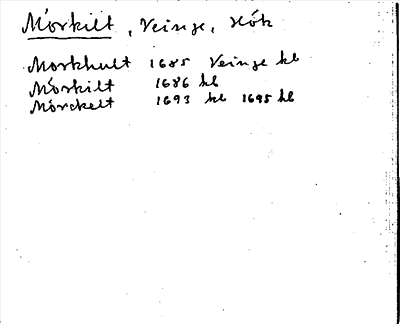 Mörkilt, Veinge, Hök
Morkhult 1685 Veinge kb
Mörkilt 1686 kb
Mörckelt 1693 kb 1695 kb